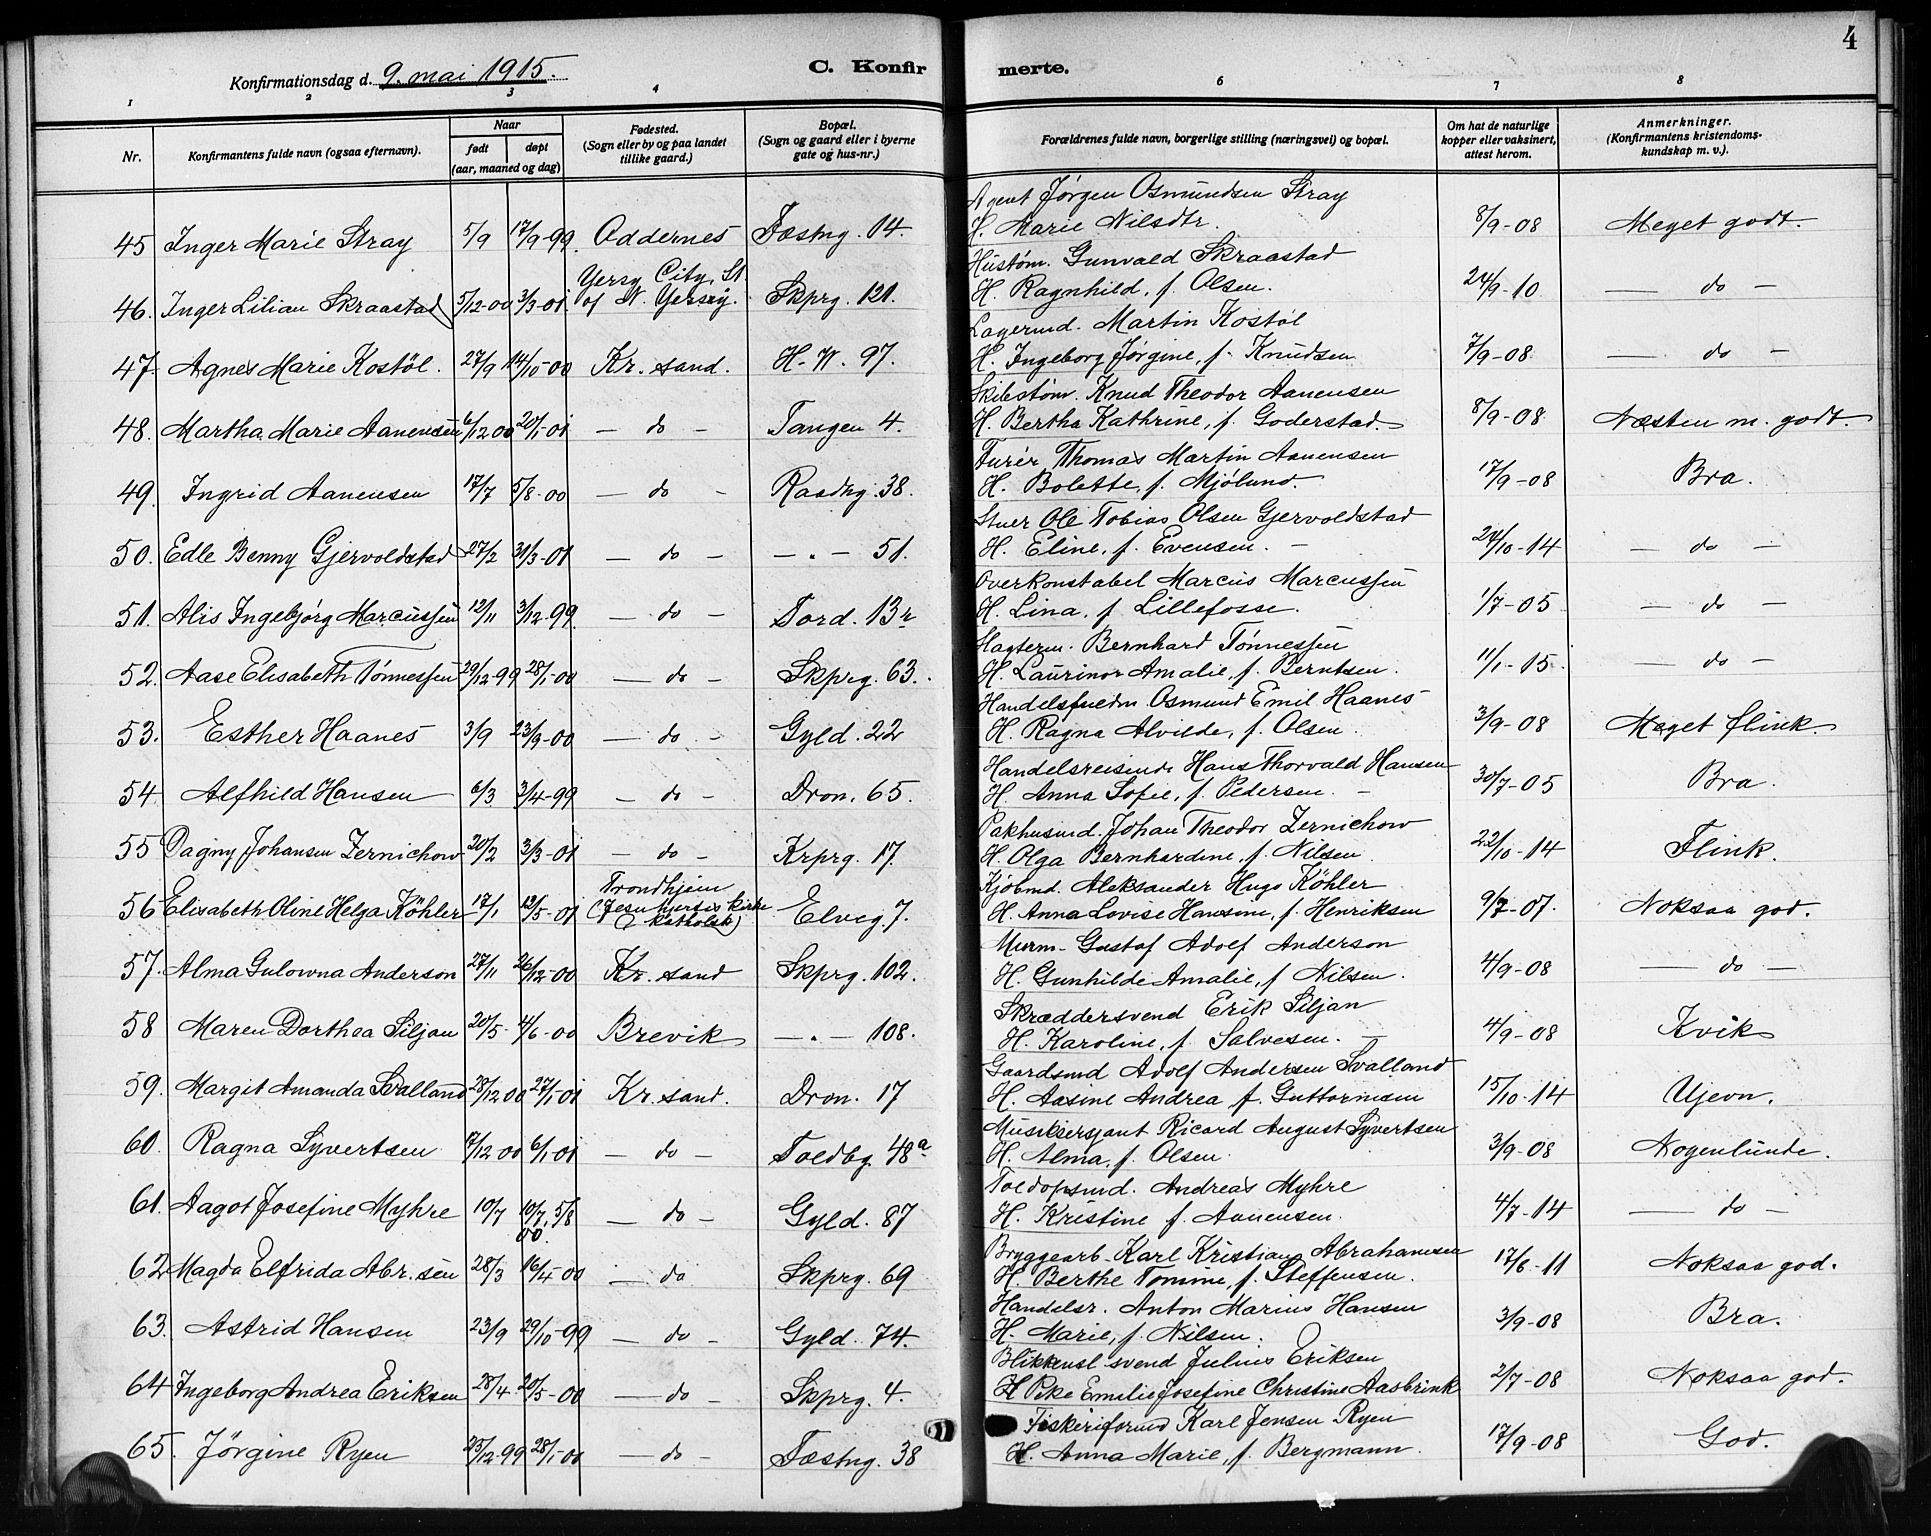 4
Konfirmationsdag d. 9. mai 1915.
C. Konfirmerte.
1 2 3 4 6 7 8
Nr.
Konfirmantens fulde navn (ogsaa efternavn).
Naar
født døpt
(aar, maaned og dag)
Fødested.
(Sogn eller by og paa landet
tillike gaard.)
Bopæl.
(Sogn og gaard eller i byerne
gate og hus-nr.)
Forældrenes fulde navn, borgerlige stilling (næringsvei) og bopæl.
Om hat de naturlige
kopper eller vaksinert,
attest herom.
Anmerkninger.
(Konfirmantens kristendoms-
kundskap m. v.).
Agent Jörgen Osmundsen Stray
45 Inger Marie Stray 5/9 17/9-99. Oddernes Fæstng. 14. H. Marie Nilsdtr. 8/9-08 Meget godt.
Yersy City, St. Hustøm. Gunvald Skraastad
46. Inger Lilian Skraastad 5/12-00 3/3-01. of N. Yersey. Skprg. 121. H. Ragnhild, f. Olsen. 24/9-10 — do —
Lagermd. Martin Kostöl
47. Agnes Marie Kostöl. 27/9 14/10-00 Kr. sand. H. W. 97. H. Ingeborg Jörgine, f. Knudsen 7/9-08. — do —
Skibstøm. Knud Theodor Aanensen
48. Martha Marie Aanensen 6/12 00 20/1-01 — do — Tangen 4. H. Bertha Kathrine, f. Goderstad. 8/9-08 Næsten m. godt.
Furér Thomas Martin Aanensen
49. Ingrid Aanensen 17/7 5/8-00 — do — Raadhg. 38. H. Bolette, f. Mjölund. 17/9-08 Bra.
Stuer Ole Tobias Olsen Gjervoldstad
50. Edle Benny Gjervoldstad 27/2 31/3-01 — do — — . — 51. H. Eline, f. Evensen. — 24/10-14 — do —
Overkonstabel Marcus Marcussen
51. Alis Ingebjörg Marcussen 12/11 3/12-99. — do — Tord. 13 H. Lina, f. Lillefosse. 1/7-05 — do —
Bernhard Tönnessen
52. Aase Elisabeth Tönnessen 29/12-99 28/1-00 — do — Skprg. 63. H. Laurinor Amalie, f. Berntsen. 11/1-15. — do —
Osmund Emil Haanes
53. Esther Haanes 3/9 23/9-00 — do — Gyld. 22 H. Ragna Alvilde, f. Olsen. 3/9-08 Meget flink.
Handelsreisende Hans Thorvald Hansen
54. Alfhild Hansen 6/3 3/4-99 — do — Dron. 65. H. Anna Sofie, f. Pedersen. — 30/7-05 Bra.
Pakhusmd. Johan Theodor Zernichow
55 Dagny Johansen Zernichow 20/2 3/3-01 — do — Krprg. 17. H. Olga Bernhardine, f. Nilsen. 22/10-14 Flink.
Trondhjem Kjöbmd. Aleksander Hugo Köhler
56 Elisabeth Oline Helga Köhler 17/1 12/5-01 (Jesu hjertes kirke katholsk) Elveg. 7. H. Anna Lovise Hansine, f. Henriksen 9/7-07. Noksaa god.
Murm. Gustaf Adolf Anderson
57. Alma Gulowna Anderson 27/11 26/12-00 Kr. sand Skprg. 102. H. Gunhilde Amalie, f. Nilsen. 4/9-08 — do —
Skræddersvend Erik Siljan
58 Maren Dorthea Siljan 20/5- 4/6-00 Brevik — . — 108. H. Karoline, f. Salvesen. — 4/9-08 Kvik
Gaardsmd Adolf Andersen Svalland
59. Margit Amanda Svalland 28/12 00 27/1-01 Kr. sand. Dron. 17 H. Aasine Andrea f. Guttormsen 15/10-14 Ujevn.
Musiksersjant Ricard August Syvertsen
60. Ragna Syvertsen 7/12 00 6/1-01 — do — Toldbg. 48a H. Alma, f. Olsen. 3/9-08 Nogenlunde.
Toldopsmd. Andreas Myhre
61. Aagot Josefine Myhre 10/7 10/7, 5/8 00. — do — Gyld. 87 H. Kristine f. Aanensen. 4/7-14 — do —
Bryggearb. Karl Kristian Abrahamsen
62 Magda Elfrida Abr. sen 28/3 16/4-00 — do — Skprg. 69 H. Berthe Tomine, f. Steffensen. 17/6-11 Noksaa god.
Handelsr. Anton Marius Hansen
63. Astrid Hansen 23/9 29/10-99 — do — Gyld. 74. H. Marie, f. Nilsen. 3/9-08 Bra.
Blikkensl svend Julius Eriksen
64 Ingeborg Andrea Eriksen 28/4 20/5-00 — do — Skprg. 4. H. Emilie Josefine Christine Aasbrink 2/7-08 Noksaa god.
Karl Jensen Ryen
65. Jörgine Ryen 25/12-99 28/1-00 — do — Fæstng. 38 H. Anna Marie, f. Bergmann. 17/9-08 God.